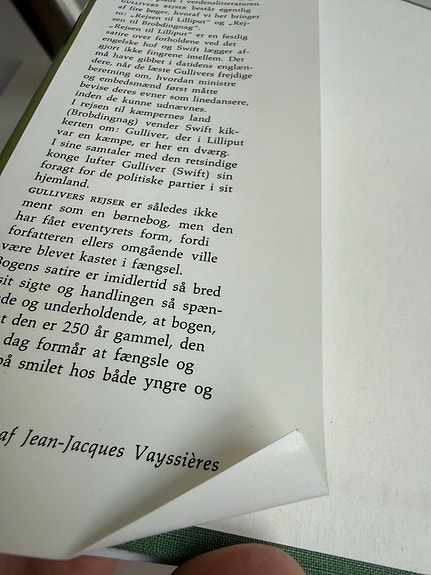 i verdenslitteraturen.
GULLIVERS REJSER består egentlig
af fire bøger, hvoraf vi her bringer
to: „Rejsen til Lilliput" og „Rej-
sen til Brobdingnag".
„Rejsen til Lilliput" er en festlig
satire over forholdene ved det
engelske hof og Swift lægger af-
gjort ikke fingrene imellem. Det
må have gibbet i datidens englæn-
dere, når de læste Gullivers frejdige
beretning om, hvordan ministre
og embedsmænd først måtte
bevise deres evner som linedansere,
inden de kunne udnævnes.
I rejsen til kæmpernes land
(Brobdingnag) vender Swift kik-
kerten om: Gulliver, der i Lilliput
var en kæmpe, er her en dværg.
I sine samtaler med den retsindige
konge lufter Gulliver (Swift) sin
foragt for de politiske partier i sit
hjemland.
GULLIVERS REJSER er således ikke
ment som en børnebog, men den
har fået eventyrets form, fordi
forfatteren ellers omgående ville
være blevet kastet i fængsel.
Bogens satire er imidlertid så bred
sit sigte og handlingen så spæn-
de og underholdende, at bogen,
t den er 250 år gammel, den
dag formår at fængsle og
på smilet hos både yngre og
af Jean-Jacques Vayssières